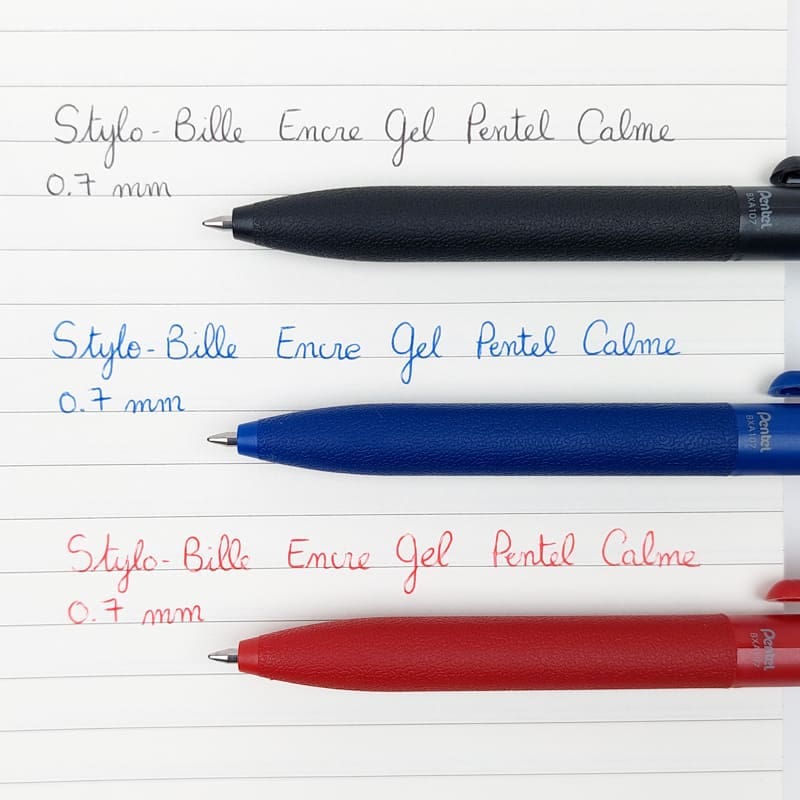 Stylo-Bille Encre Gel Pentel Calme
0.7 mm
Pentel
BXA107
Stylo-Bille Encre Gel Pentel Calme
0.7 mm
Pentel
BXA107
Stylo-Bille Encre Gel Pentel Calme
0.7 mm
Pentel
BXA107